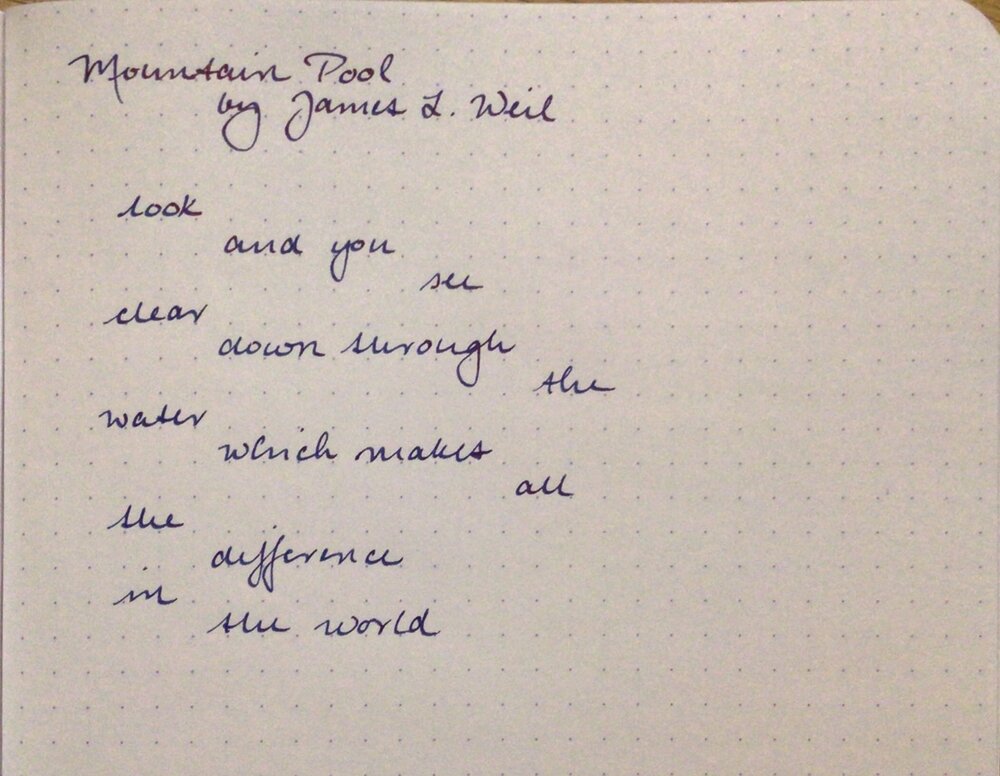 Mountain Pool
by James L. Weil
look
and you
see
clear
down through
the
water
which makes
all
the
difference
in
the world